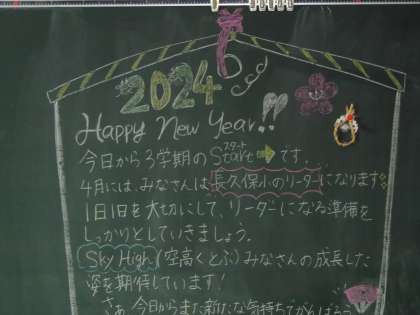 2024
Happy New Year!!
今日から3学期のStartです。
スタート
4月には、みなさんは長久保小のリーダーになります。
1日1日を大切にして、リーダーになる準備を
しっかりとしていきましょう。
Sky High(空高くとぶ)みなさんの成長した
姿を期待しています!
さぁ、今日からまた新たな気持ちでがんばろう